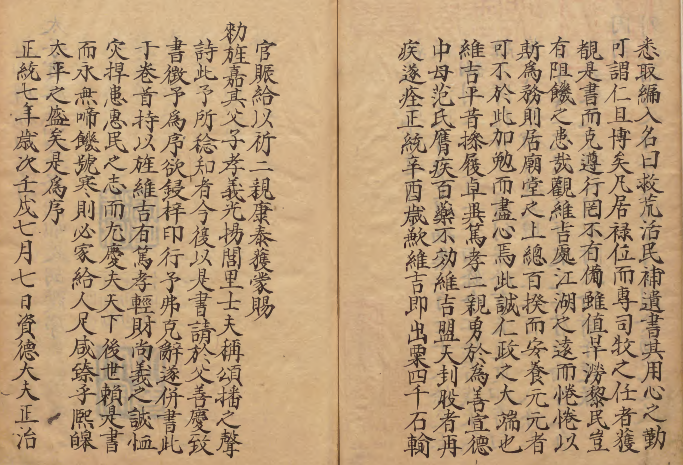 悉取編入名曰救荒治民補遺書其用心之勤
可謂仁且博矣凡居祿位而專司牧之任者獲
覩是書而克遵行罔不有備雖值旱澇黎民豈
有阻饑之患哉觀維吉處江湖之遠而惓惓以
斯為務則居廟堂之上總百揆而安養元元者
可不於此加勉而盡心焉此誠仁政之大端也
維吉平昔操履卓異篤孝二親勇於為善宣德
中母范氏膺疾百藥不効維吉盟天刲股者再
疾遂痊正統辛酉歲歉維吉即出粟四千石輸
官賑給以祈二親康泰獲蒙賜
勑旌嘉其父子孝義光揚閭里士夫稱頌播之聲
詩此予所稔知者今復以是書請於父善慶致
書徵予為序欲鋟梓印行予弗克辭遂併書此
于卷首持以旌維吉有篤孝輕財尚義之誠恤
災捍患惠民之志而尤慶夫天下後世賴是書
而永無啼饑號寒則必家給人足咸臻乎熈皞
太平之盛矣是為序
正統七年歲次壬戌七月七日資德大夫正治